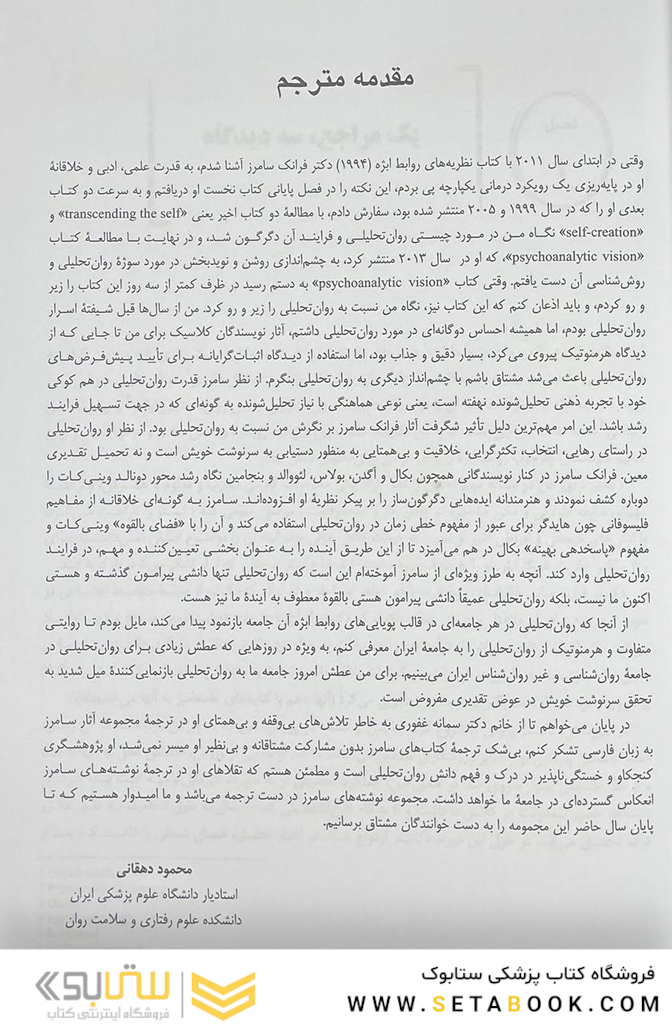 مقدمه مترجم
وقتی در ابتدای سال ۲۰۱۱ با کتاب نظریه‌های روابط ابژه (۱۹۹۴) دکتر فرانک سامرز آشنا شدم، به قدرت علمی، ادبی و خلاقانهٔ
او در پایه‌ریزی یک رویکرد درمانی یکپارچه پی بردم، این نکته را در فصل پایانی کتاب نخست او دریافتم و به سرعت دو کتاب
بعدی او را که در سال ۱۹۹۹ و ۲۰۰۵ منتشر شده بود، سفارش دادم، با مطالعهٔ دو کتاب اخیر یعنی «transcending the self» و
«self-creation» نگاه من در مورد چیستی روان‌تحلیلی و فرایند آن دگرگون شد، و در نهایت با مطالعهٔ کتاب
«psychoanalytic vision»، که او در سال ۲۰۱۳ منتشر کرد، به چشم‌اندازی روشن و نویدبخش در مورد سوژهٔ روان‌تحلیلی و
روش‌شناسی آن دست یافتم. وقتی کتاب «psychoanalytic vision» به دستم رسید در ظرف کمتر از سه روز این کتاب را زیر
و رو کردم، و باید اذعان کنم که این کتاب نیز، نگاه من نسبت به روان‌تحلیلی را زیر و رو کرد. من از سال‌ها قبل شیفتهٔ اسرار
روان‌تحلیلی بودم، اما همیشه احساس دوگانه‌ای در مورد روان‌تحلیلی داشتم، آثار نویسندگان کلاسیک برای من تا جایی که از
دیدگاه هرمنوتیک پیروی می‌کرد، بسیار دقیق و جذاب بود، اما استفاده از دیدگاه اثبات‌گرایانه برای تأیید پیش‌فرض‌های
روان‌تحلیلی باعث می‌شد مشتاق باشم با چشم‌انداز دیگری به روان‌تحلیلی بنگرم. از نظر سامرز قدرت روان‌تحلیلی در هم کوکی
خود با تجربه ذهنی تحلیل‌شونده نهفته است، یعنی نوعی هماهنگی با نیاز تحلیل‌شونده به گونه‌ای که در جهت تسهیل فرایند
رشد باشد. این امر مهم‌ترین دلیل تأثیر شگرفت آثار فرانک سامرز بر نگرش من نسبت به روان‌تحلیلی بود. از نظر او روان‌تحلیلی
در راستای رهایی، انتخاب، تکثرگرایی، خلاقیت و بی‌همتایی به منظور دستیابی به سرنوشت خویش است و نه تحمیل تقدیری
معین. فرانک سامرز در کنار نویسندگانی همچون بکال و آگدن، بولاس، لئووالد و بنجامین نگاه رشد محور دونالد وینی‌کات را
دوباره کشف نمودند و هنرمندانه ایده‌هایی دگرگون‌ساز را بر پیکر نظریهٔ او افزوده‌اند. سامرز به گونه‌ای خلاقانه از مفاهیم
فلیسوفانی چون هایدگر برای عبور از مفهوم خطی زمان در روان‌تحلیلی استفاده می‌کند و آن را با «فضای بالقوه» وینی‌کات و
مفهوم «پاسخدهی بهینه» بکال در هم می‌آمیزد تا از این طریق آینده را به عنوان بخشی تعیین‌کننده و مهم، در فرایند
روان‌تحلیلی وارد کند. آنچه به طرز ویژه‌ای از سامرز آموخته‌ام این است که روان‌تحلیلی تنها دانشی پیرامون گذشته و هستی
اکنون ما نیست، بلکه روان‌تحلیلی عمیقاً دانشی پیرامون هستی بالقوهٔ معطوف به آیندهٔ ما نیز هست.
از آنجا که روان‌تحلیلی در هر جامعه‌ای در قالب پویایی‌های روابط ابژه آن جامعه بازنمود پیدا می‌کند، مایل بودم تا روایتی
متفاوت و هرمنوتیک از روان‌تحلیلی را به جامعهٔ ایران معرفی کنم، به ویژه در روزهایی که عطش زیادی برای روان‌تحلیلی در
جامعهٔ روان‌شناسی و غیر روان‌شناس ایران می‌بینیم. برای من عطش امروز جامعه ما به روان‌تحلیلی بازنمایی‌کنندهٔ میل شدید به
تحقق سرنوشت خویش در عوض تقدیری مفروض است.
در پایان می‌خواهم تا از خانم دکتر سمانه غفوری به خاطر تلاش‌های بی‌وقفه و بی‌همتای او در ترجمهٔ مجموعه آثار سامرز
به زبان فارسی تشکر کنم، بی‌شک ترجمهٔ کتاب‌های سامرز بدون مشارکت مشتاقانه و بی‌نظیر او میسر نمی‌شد، او پژوهشگری
کنجکاو و خستگی‌ناپذیر در درک و فهم دانش روان‌تحلیلی است و مطمئن هستم که تقلاهای او در ترجمهٔ نوشته‌های سامرز
انعکاس گسترده‌ای در جامعهٔ ما خواهد داشت. مجموعه نوشته‌های سامرز در دست ترجمه می‌باشد و ما امیدوار هستیم که تا
پایان سال حاضر این مجمومه را به دست خوانندگان مشتاق برسانیم.
محمود دهقانی
استادیار دانشگاه علوم پزشکی ایران
دانشکده علوم رفتاری و سلامت روان
فروشگاه کتاب پزشکی ستابوک
WWW.SETABOOK.COM
ستابوک
فروشگاه اینترنتی کتاب